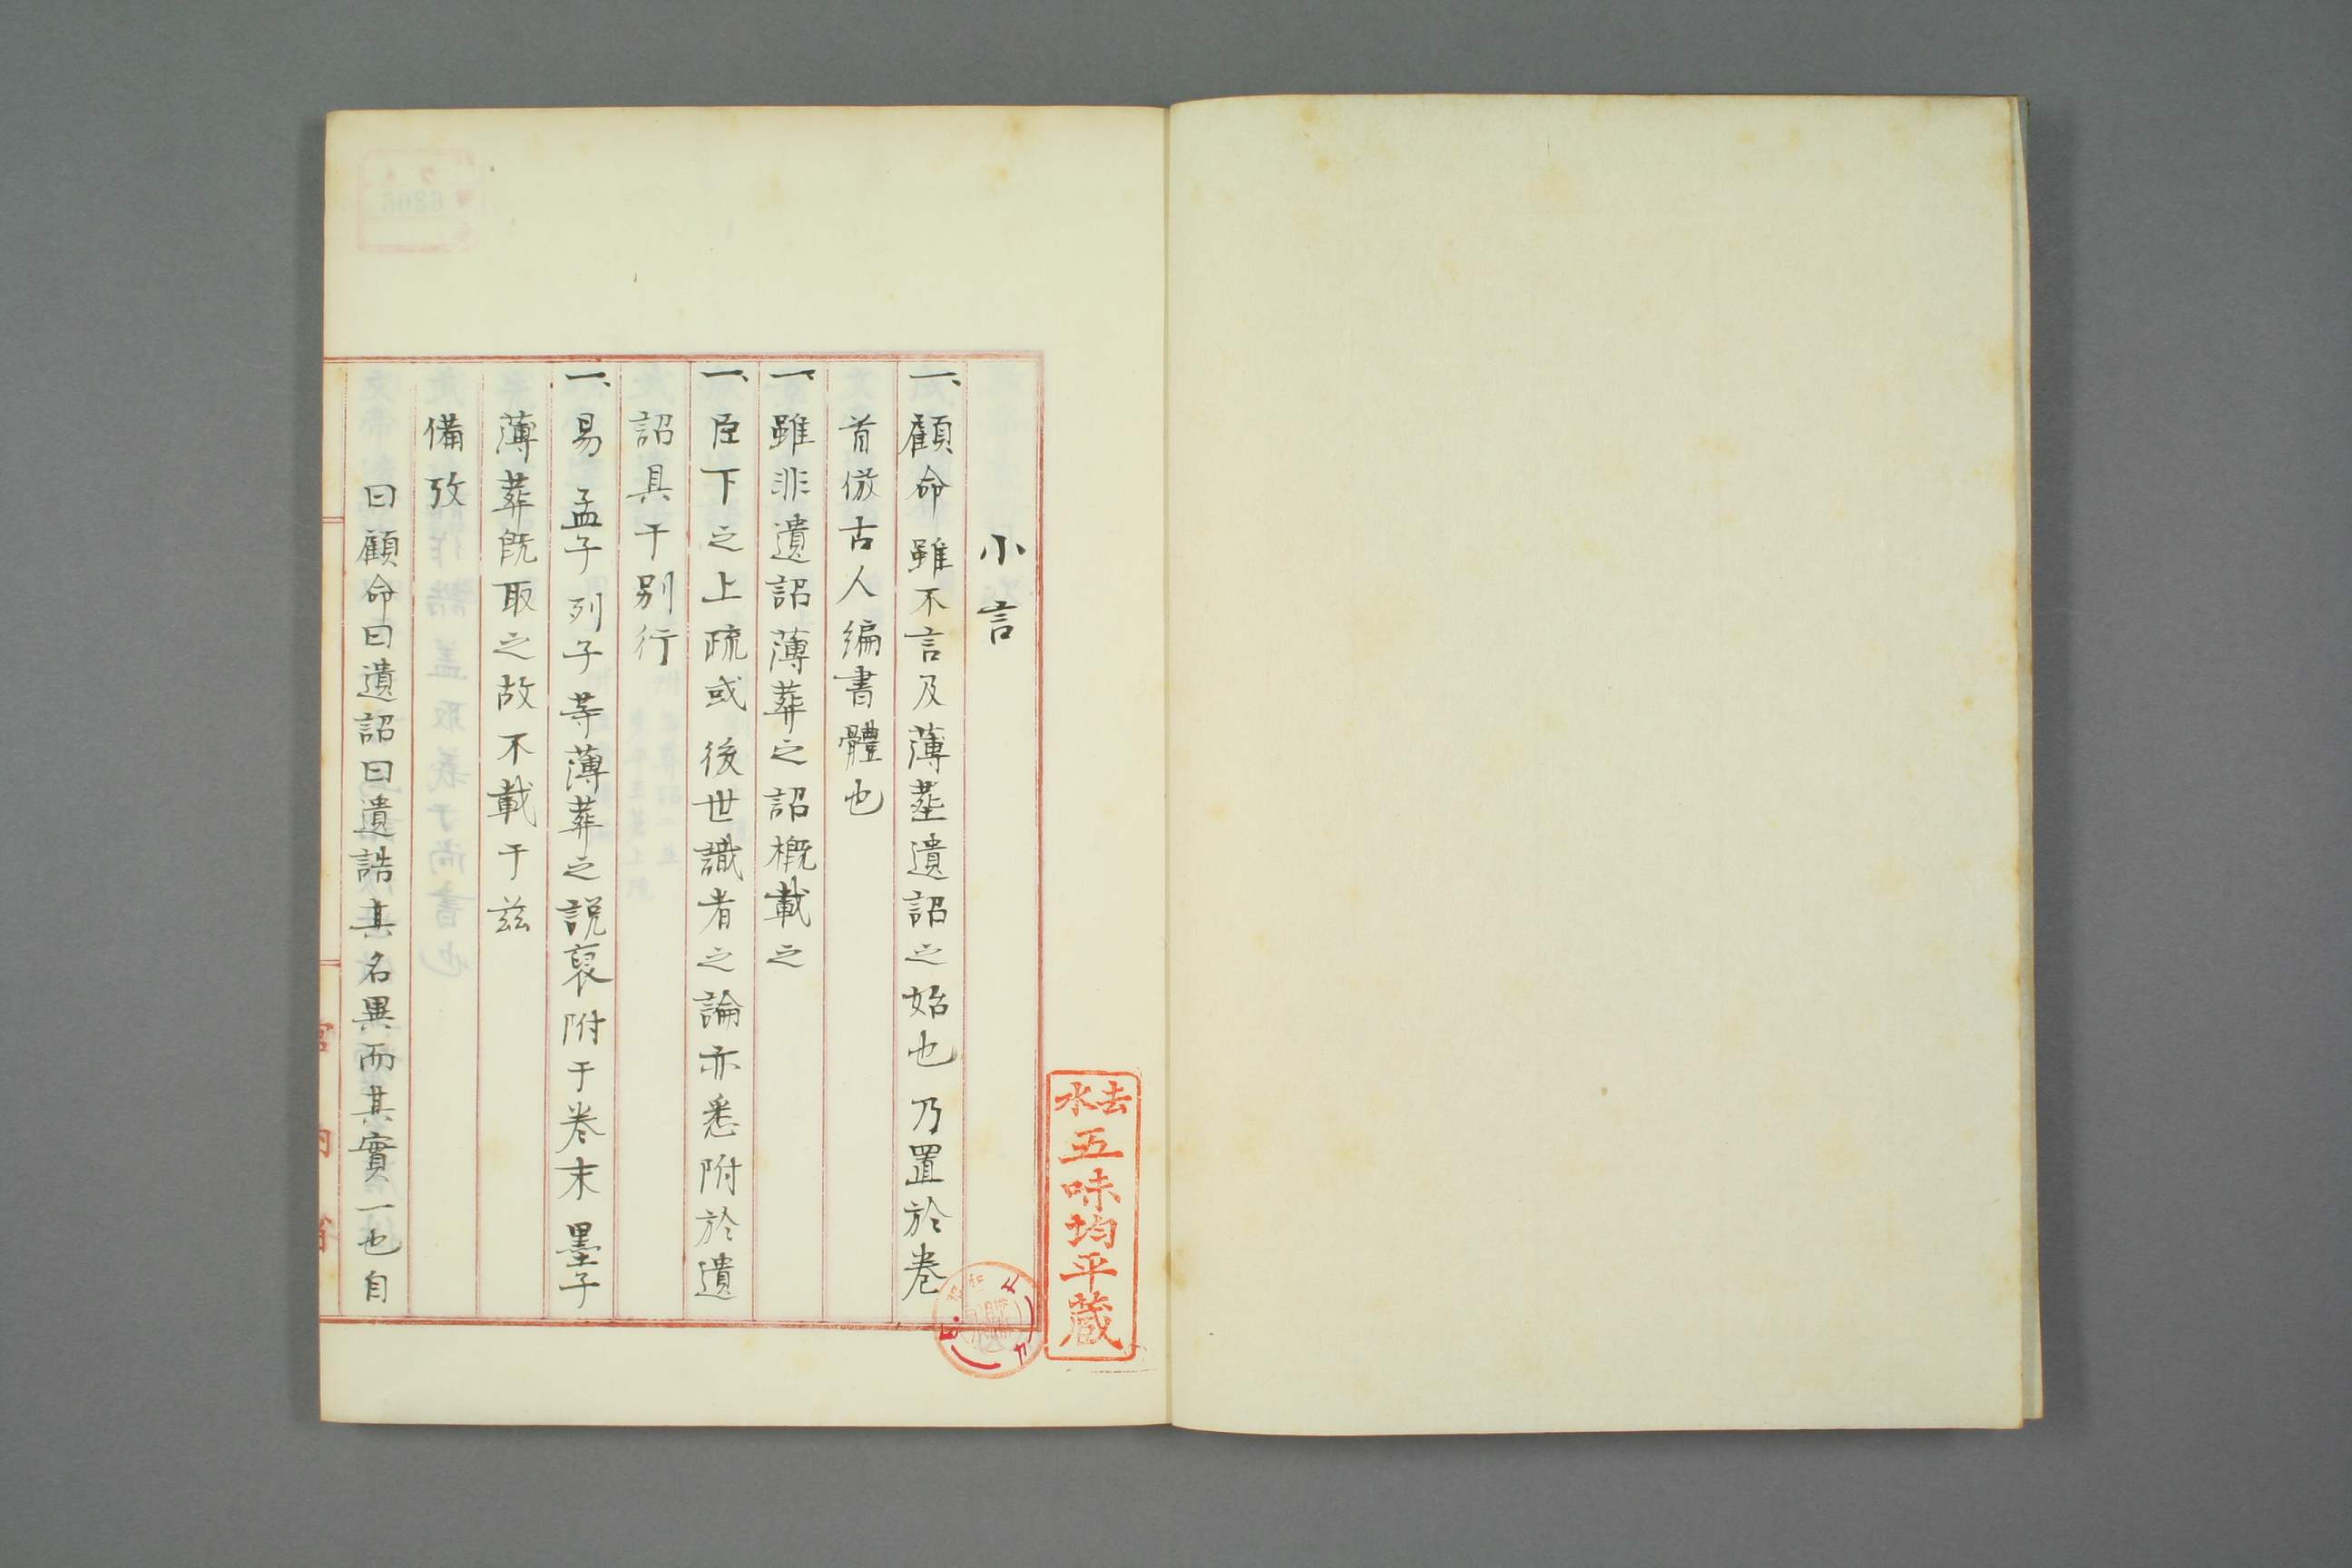 小言
一、顧命雖不言及薄塟遺詔之始也乃置於巻
首倣古人編書體也
一、雖非遺詔薄葬之詔概載之
一、臣下之上疏或後世識者之論亦悉附於遺
詔具于别行
一、易孟子列子等薄葬之説裒附于巻末墨子
薄葬既取之故不載于兹
備攷
曰顧命曰遺詔曰遺誥其名異而其實一也自
宮内省
去水
五味均平蔵